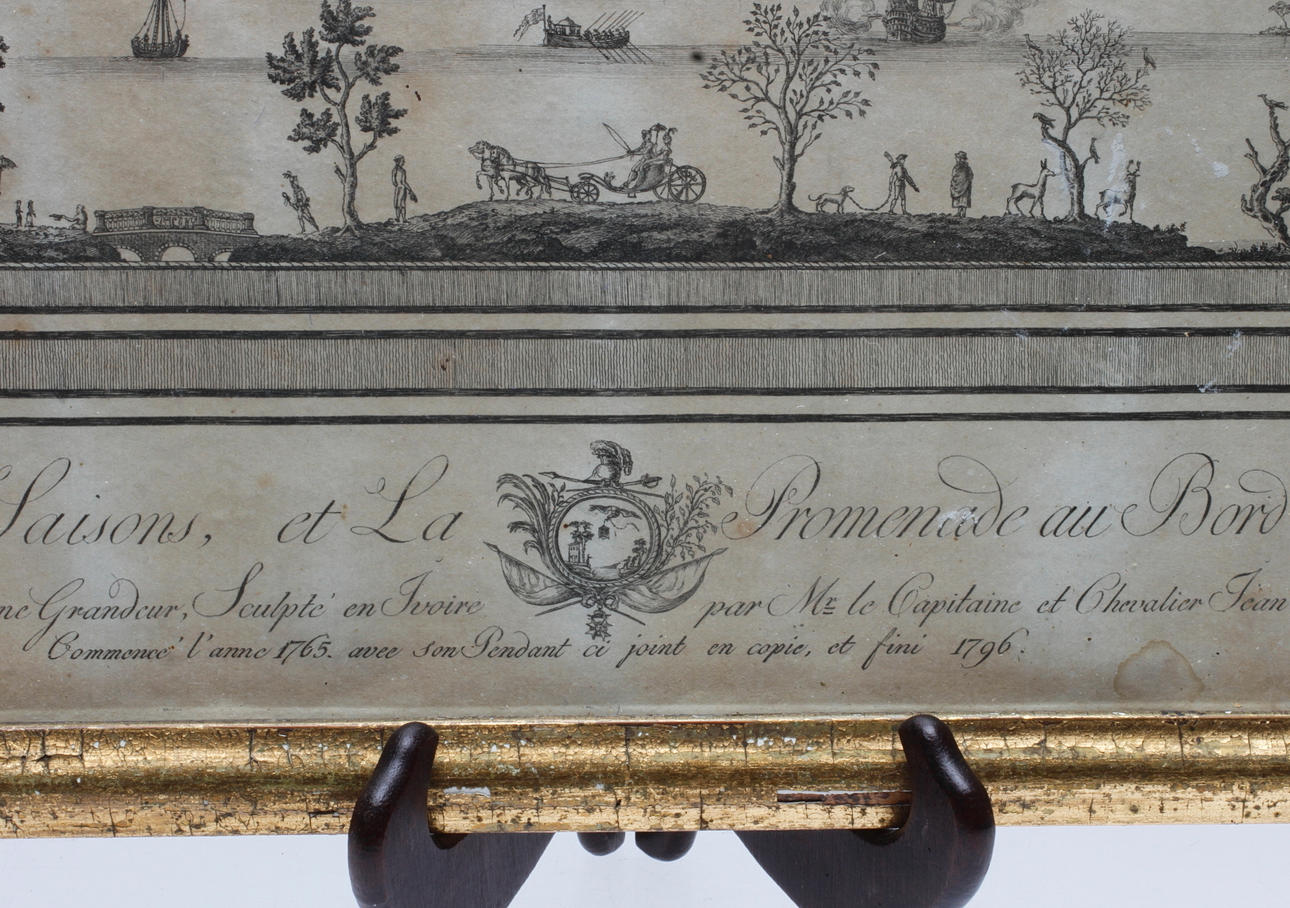 Saisons, et La Promenade au Bord
me Grandeur, Sculpté en Ivoire par Mr le Capitaine et Chevalier Jean
Commencé l'anne 1765. avec son Pendant ci joint en copie, et fini 1796.